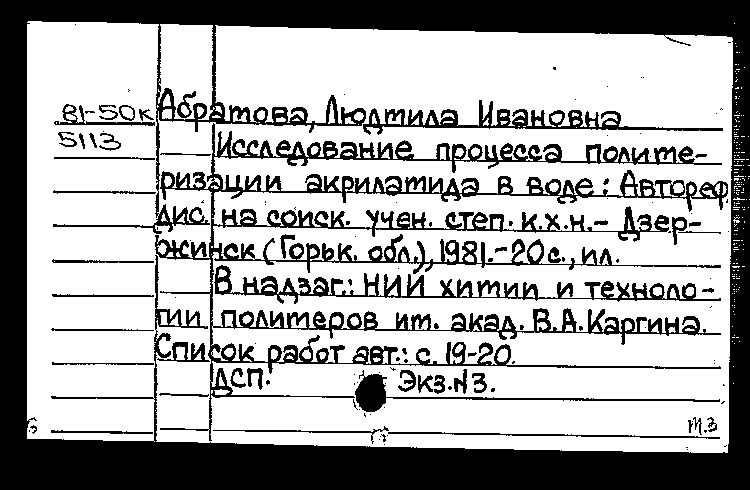 81-50к Абрамова, Людмила Ивановна
5113
Исследование процесса полиме-
ризации акриламида в воде: Автореф.
дис. на соиск. учен. степ. к.х.н.- Дзер-
жинск (Горьк. обл.), 1981.-20с., ил.
В надзаг.: НИИ химии и техноло-
гии полимеров им. акад. В.А.Каргина.
Список работ авт.: с. 19-20.
ДСП. Экз.N3.
т.3